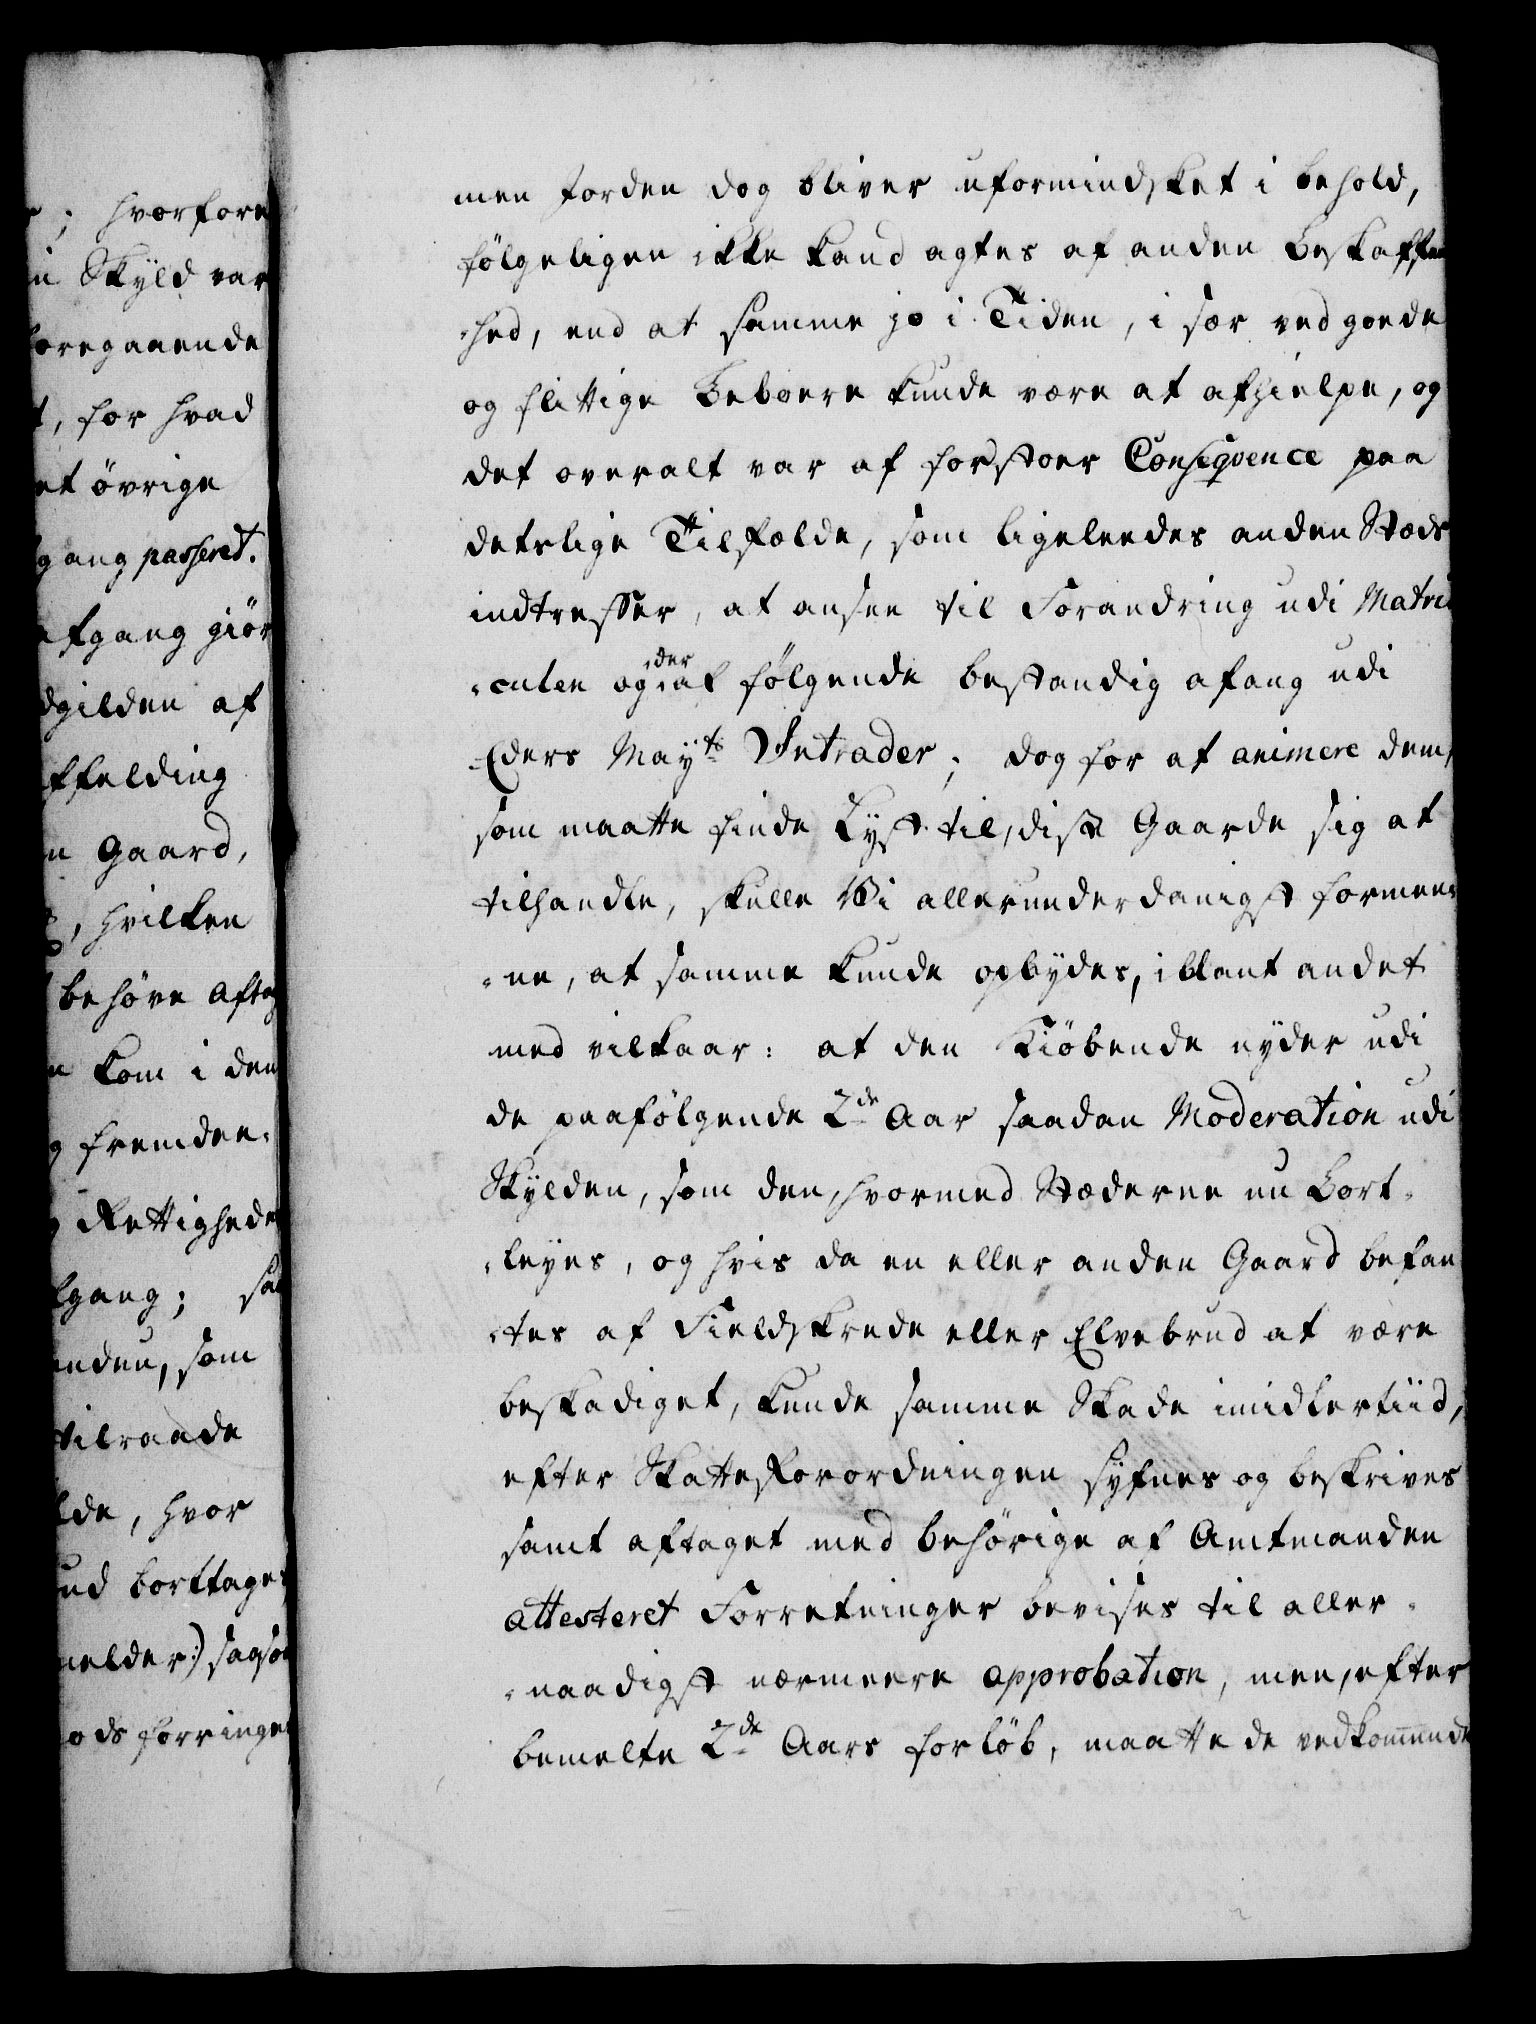 ; hvorfore
Skyld var
foregaaende
, for hvad
et övrige
gang passeret.
afgang giör
dgilden af
ffelding
Gaard,
, hvilken
behöve aftag
kom i den
fremdee-
Rettighede
gang; saa
nden, som
tilraade
lde, hvor
ud borttages
melder:) sagsö
ods forringe
men Jorden dog bliver uformindsket i behold,
fölgeligen ikke kand agtes af anden Beskaffen
-hed, end at samme jo i Tiden, i sær ved goede
og flittige Beboere kunde være at afhielpe, og
det overalt var af for stoer Conseqvence paa
deslige Tilfælde, som ligeleedes anden Stæds
indtreffer, at ansee til Forandring udi Matri
-culen og der af fölgende bestandig afgang udi
Eders Mayts Intrader; dog for at animere dem,
som maatte finde Lyst til disse Gaarde sig at
tilhandle, skulle Wi allerunderdanigst formee
-ne, at samme kunde opbydes, iblant andet
med vilkaar: at den Kiöbende nyder udi
de paafölgende 2de Aar saadan Moderation udi
Skylden, som den, hvormed Stæderne nu Bort-
-leyes, og hvis da en eller anden Gaard befan
-tes af Fieldskrede eller Elvebrud at være
beskadiget, kunde samme Skade imidlertiid,
efter Skatteforordningen syfnes og beskrives
samt aftaget med behörige af Amtmanden
attesteret Forretninger bevises til aller-
-naadigst nærmere approbation, men, efter
bemelte 2de Aars forlöb, maatte de vedkommende